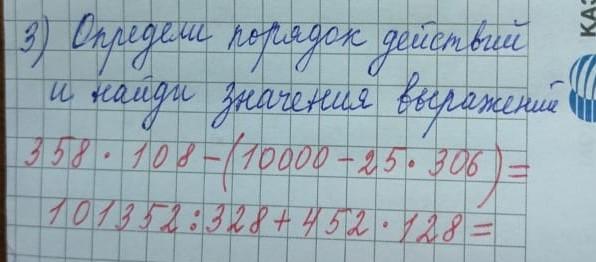 3) Определи порядок действий
и найди значения выражений
358 · 108 - (10000 - 25 · 306) =
101352 : 328 + 452 · 128 =
КАЗ